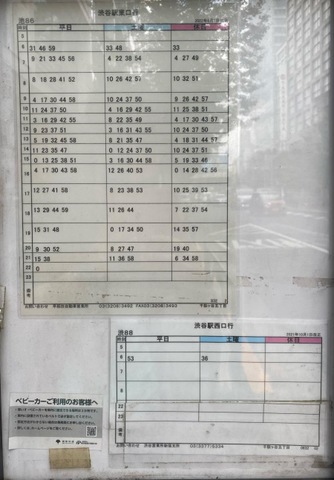 渋谷駅東口行
渋66
平日 土曜 休日
5
6 31 46 59 33 48 33
7 9 21 33 45 56 4 22 38 54 4 27 49
8 8 18 28 41 52 10 26 42 57 10 32 51
9 4 17 30 44 58 10 24 37 50 9 26 42 57
10 11 24 37 50 4 16 29 42 55 11 25 38 51
11 3 16 29 42 55 8 22 35 49 4 17 30 43 57
12 9 23 37 51 3 16 31 43 55 10 24 37 50
13 5 19 32 45 58 8 21 35 47 4 18 31 44 57
14 11 23 35 47 0 12 24 37 50 10 24 37 51
15 0 13 25 38 51 3 16 30 44 58 5 19 33 46
16 4 17 30 43 58 12 26 40 53 0 14 28 42 56
17 12 27 41 58 8 23 38 53 10 25 39 53
18 13 29 44 59 11 26 44 7 22 37 54
19 15 31 48 0 17 34 50 14 35 57
20 9 30 52 8 27 47 19 40
21 15 38 11 36 58 6 34 58
22 0
23
備考
渋谷駅西口行
渋66
平日 土曜 休日
5
6 53 36
22
23
備考
ベビーカーご利用のお客様へ